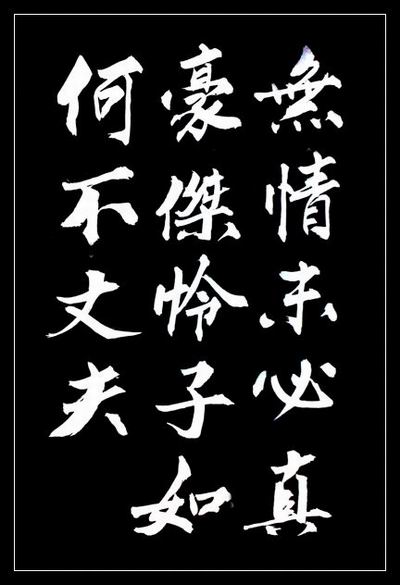 無情未必真
豪傑怜子如
何不丈夫